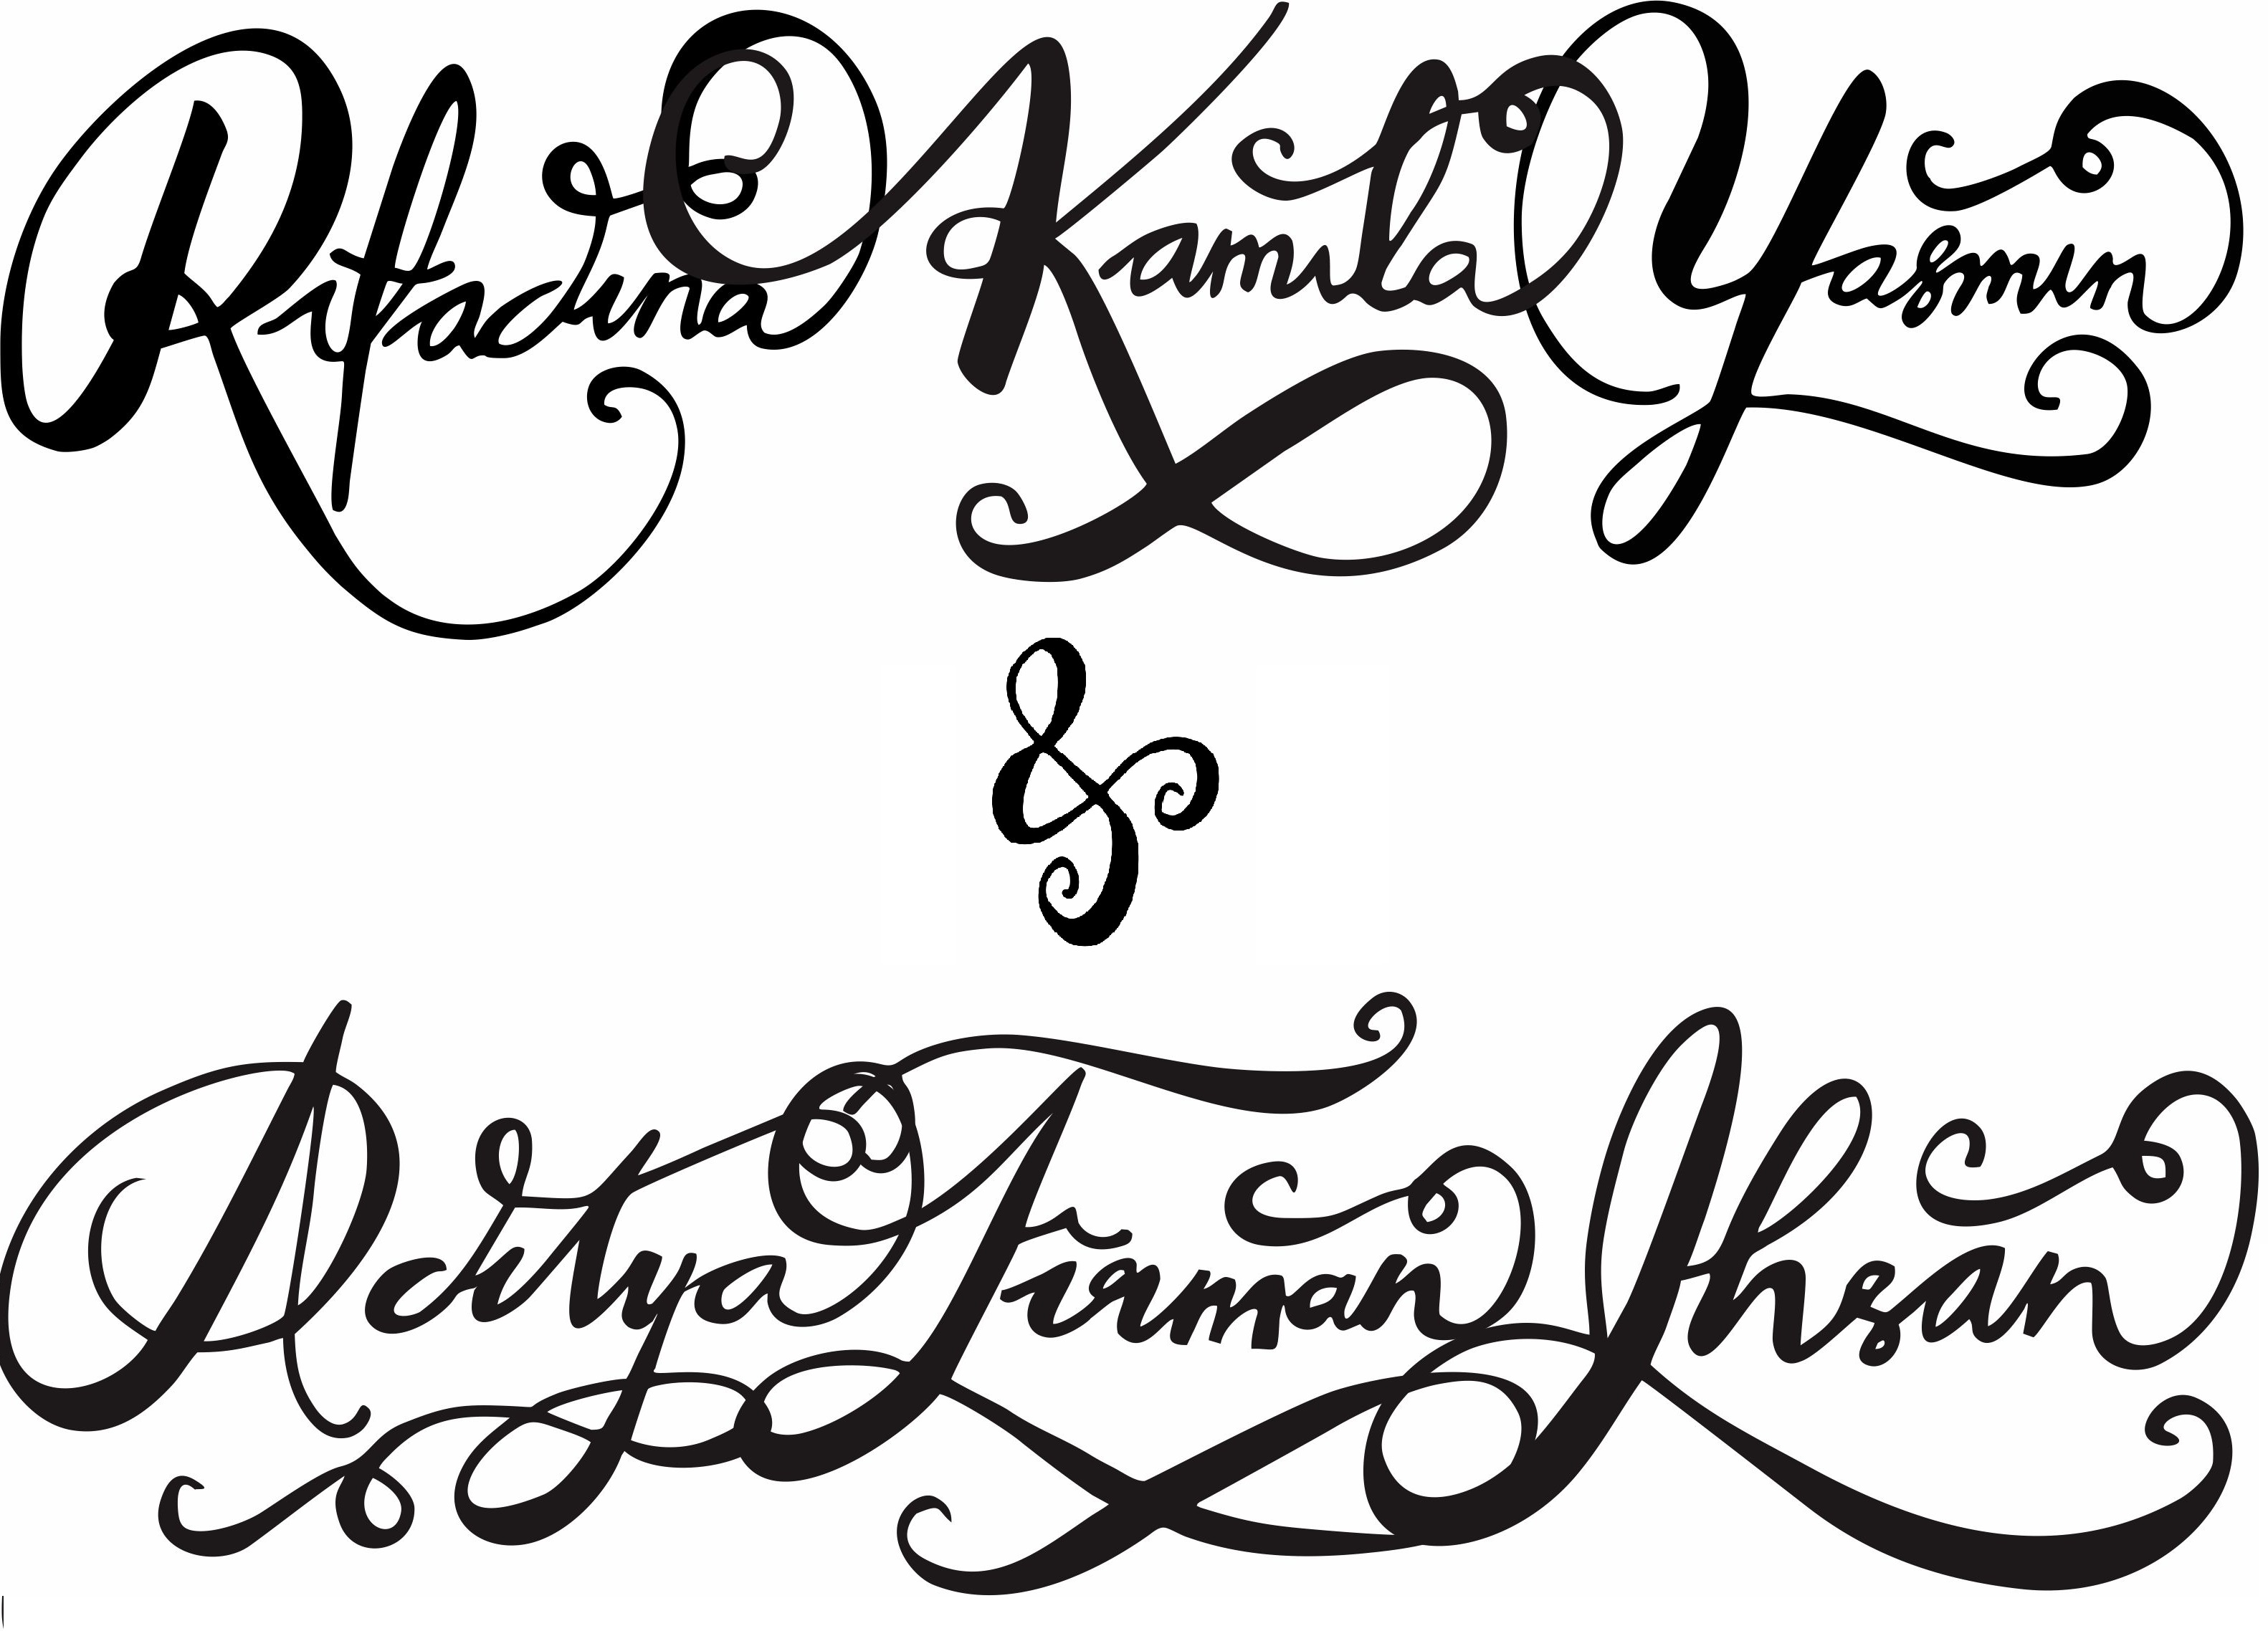 Rifadina Kamila Yasmin
&
Aditya Firman Ihsan